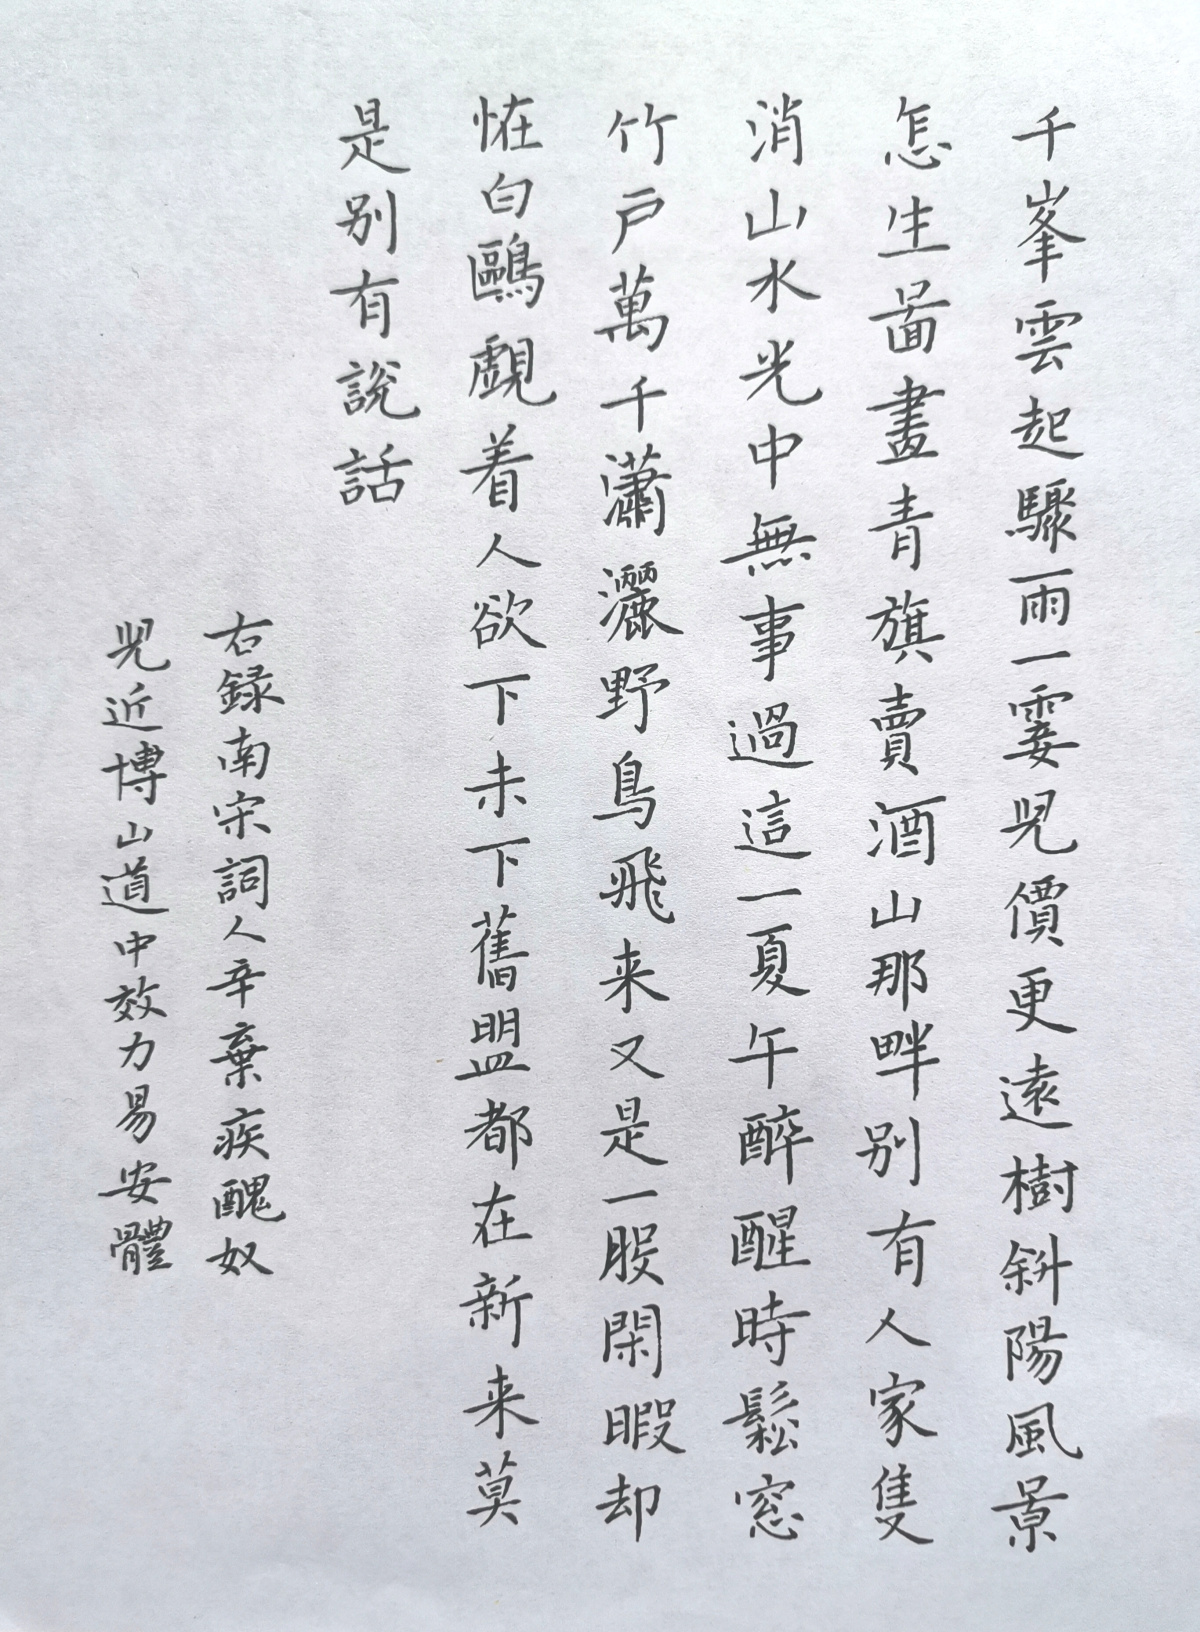 千峯雲起驟雨一霎兒價更遠樹斜陽風景
怎生啚畫青旗賣酒山那畔别有人家隻
消山水光中無事過這一夏午醉醒時鬆窓
竹戶萬千瀟灑野鳥飛来又是一般閑暇却
恠白鷗覷着人欲下未下舊盟都在新来莫
是别有說話
右録南宋詞人辛棄疾醜奴
兒近博山道中效力易安體